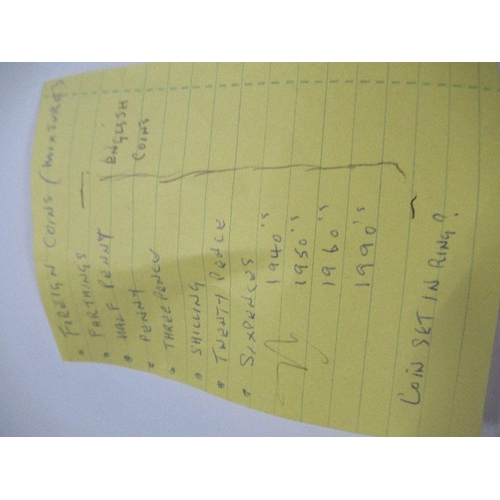 • FOREIGN COINS (MIXTURE)
• FARTHINGS
• HALF PENNY
• PENNY
• THREEPENCE
• SHILLING
• TWENTY PENCE
• SIXPENCES
ENGLISH
COINS
1940's
1950's
1960's
1990's
COIN SET IN RING?